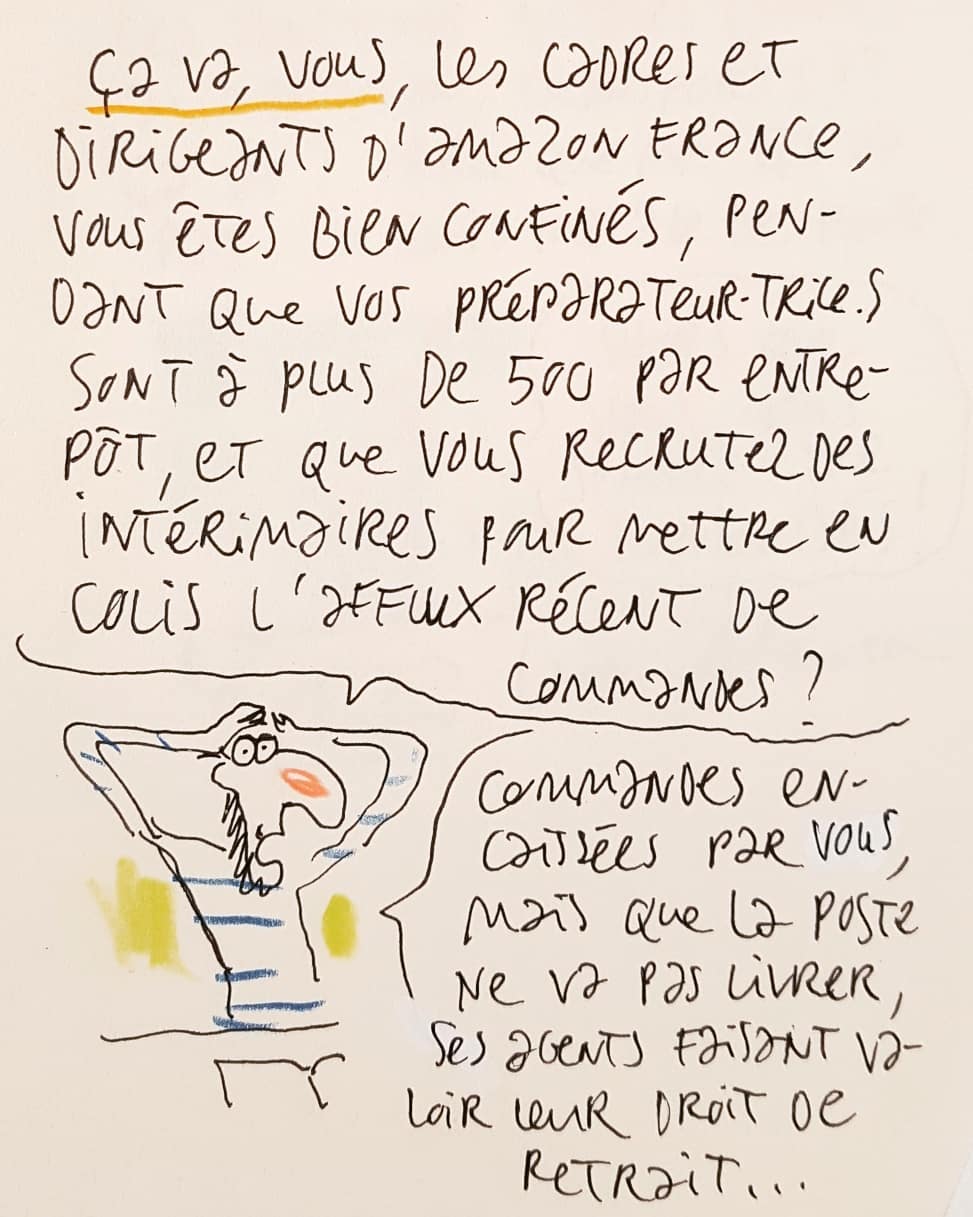 ça va, vous, les cadres et
dirigeants d'amazon france,
vous êtes bien confinés, pen-
dant que vos préparateur·trice.s
sont à plus de 500 par entre-
pôt, et que vous recrutez des
intérimaires pour mettre en
colis l'afflux récent de
commandes ?
commandes en-
caissées par vous,
mais que la poste
ne va pas livrer,
ses agents faisant va-
loir leur droit de
retrait...